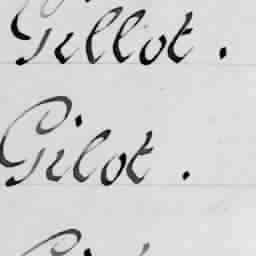 Gillot.
Gilot.